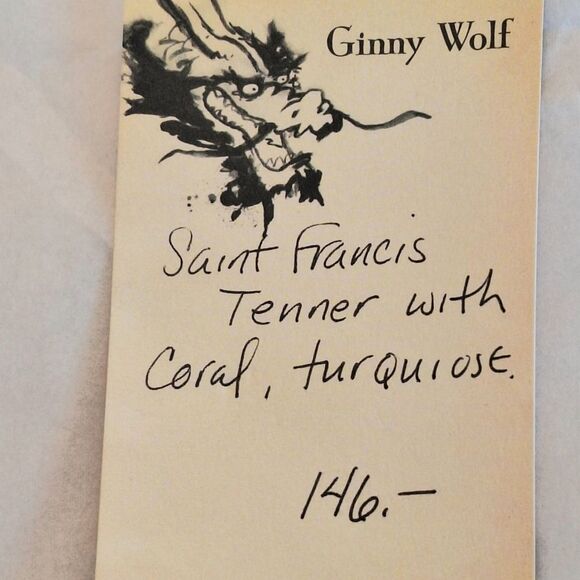 Ginny Wolf
Saint Francis
Tenner with
Coral, turquiose.
146.-